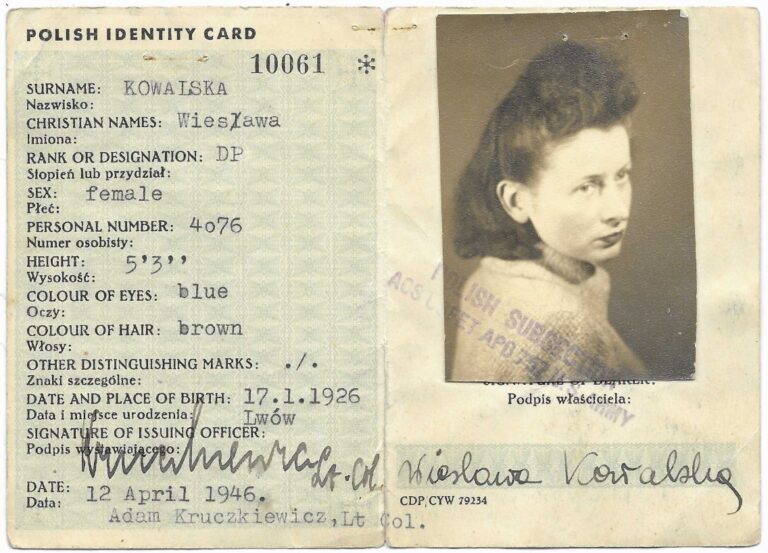 POLISH IDENTITY CARD
10061 *
SURNAME: KOWALSKA
Nazwisko:
CHRISTIAN NAMES: Wiesława
Imiona:
RANK OR DESIGNATION: DP
Stopień lub przydział:
SEX: female
Płeć:
PERSONAL NUMBER: 4o76
Numer osobisty:
HEIGHT: 5'3''
Wysokość:
COLOUR OF EYES: blue
Oczy:
COLOUR OF HAIR: brown
Włosy:
OTHER DISTINGUISHING MARKS: ./.
Znaki szczególne:
DATE AND PLACE OF BIRTH: 17.1.1926
Data i miejsce urodzenia: Lwów
SIGNATURE OF ISSUING OFFICER:
Podpis wystawiającego:
Lt. Col.
DATE: 12 April 1946.
Data: Adam Kruczkiewicz, Lt Col.
POLISH
APO 757
ARMY
Podpis właściciela:
Wiesława Kowalska
CDP, CYW 79234